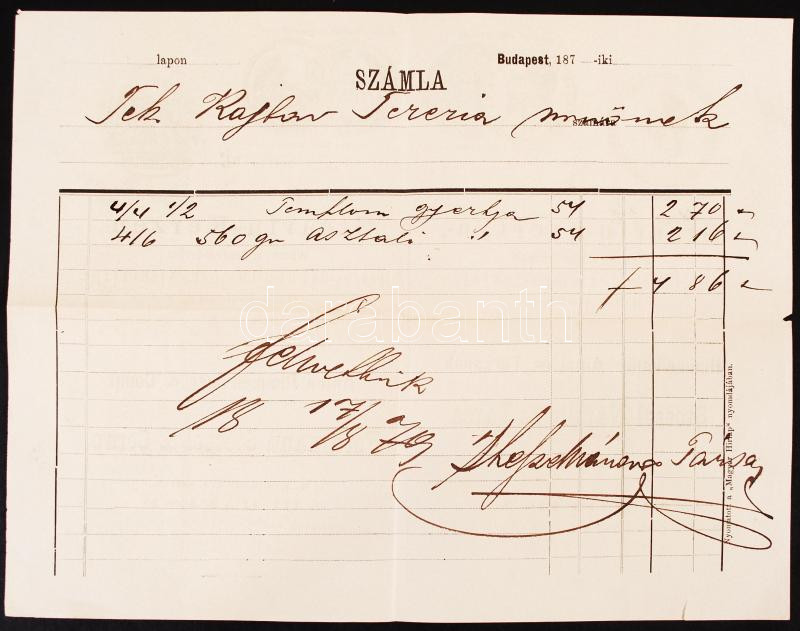 lapon Budapest, 187 -iki
SZÁMLA
Tek. Kajtar Terezia nőnek
számára
4/4 1/2 Templom gyertya 54 2 70
4/6 560 gr asztali " 54 2 16
f 4 86
darabanth
18 17/8 79
Társa
Nyomatott a „Magyar Hirlap" nyomdájában.